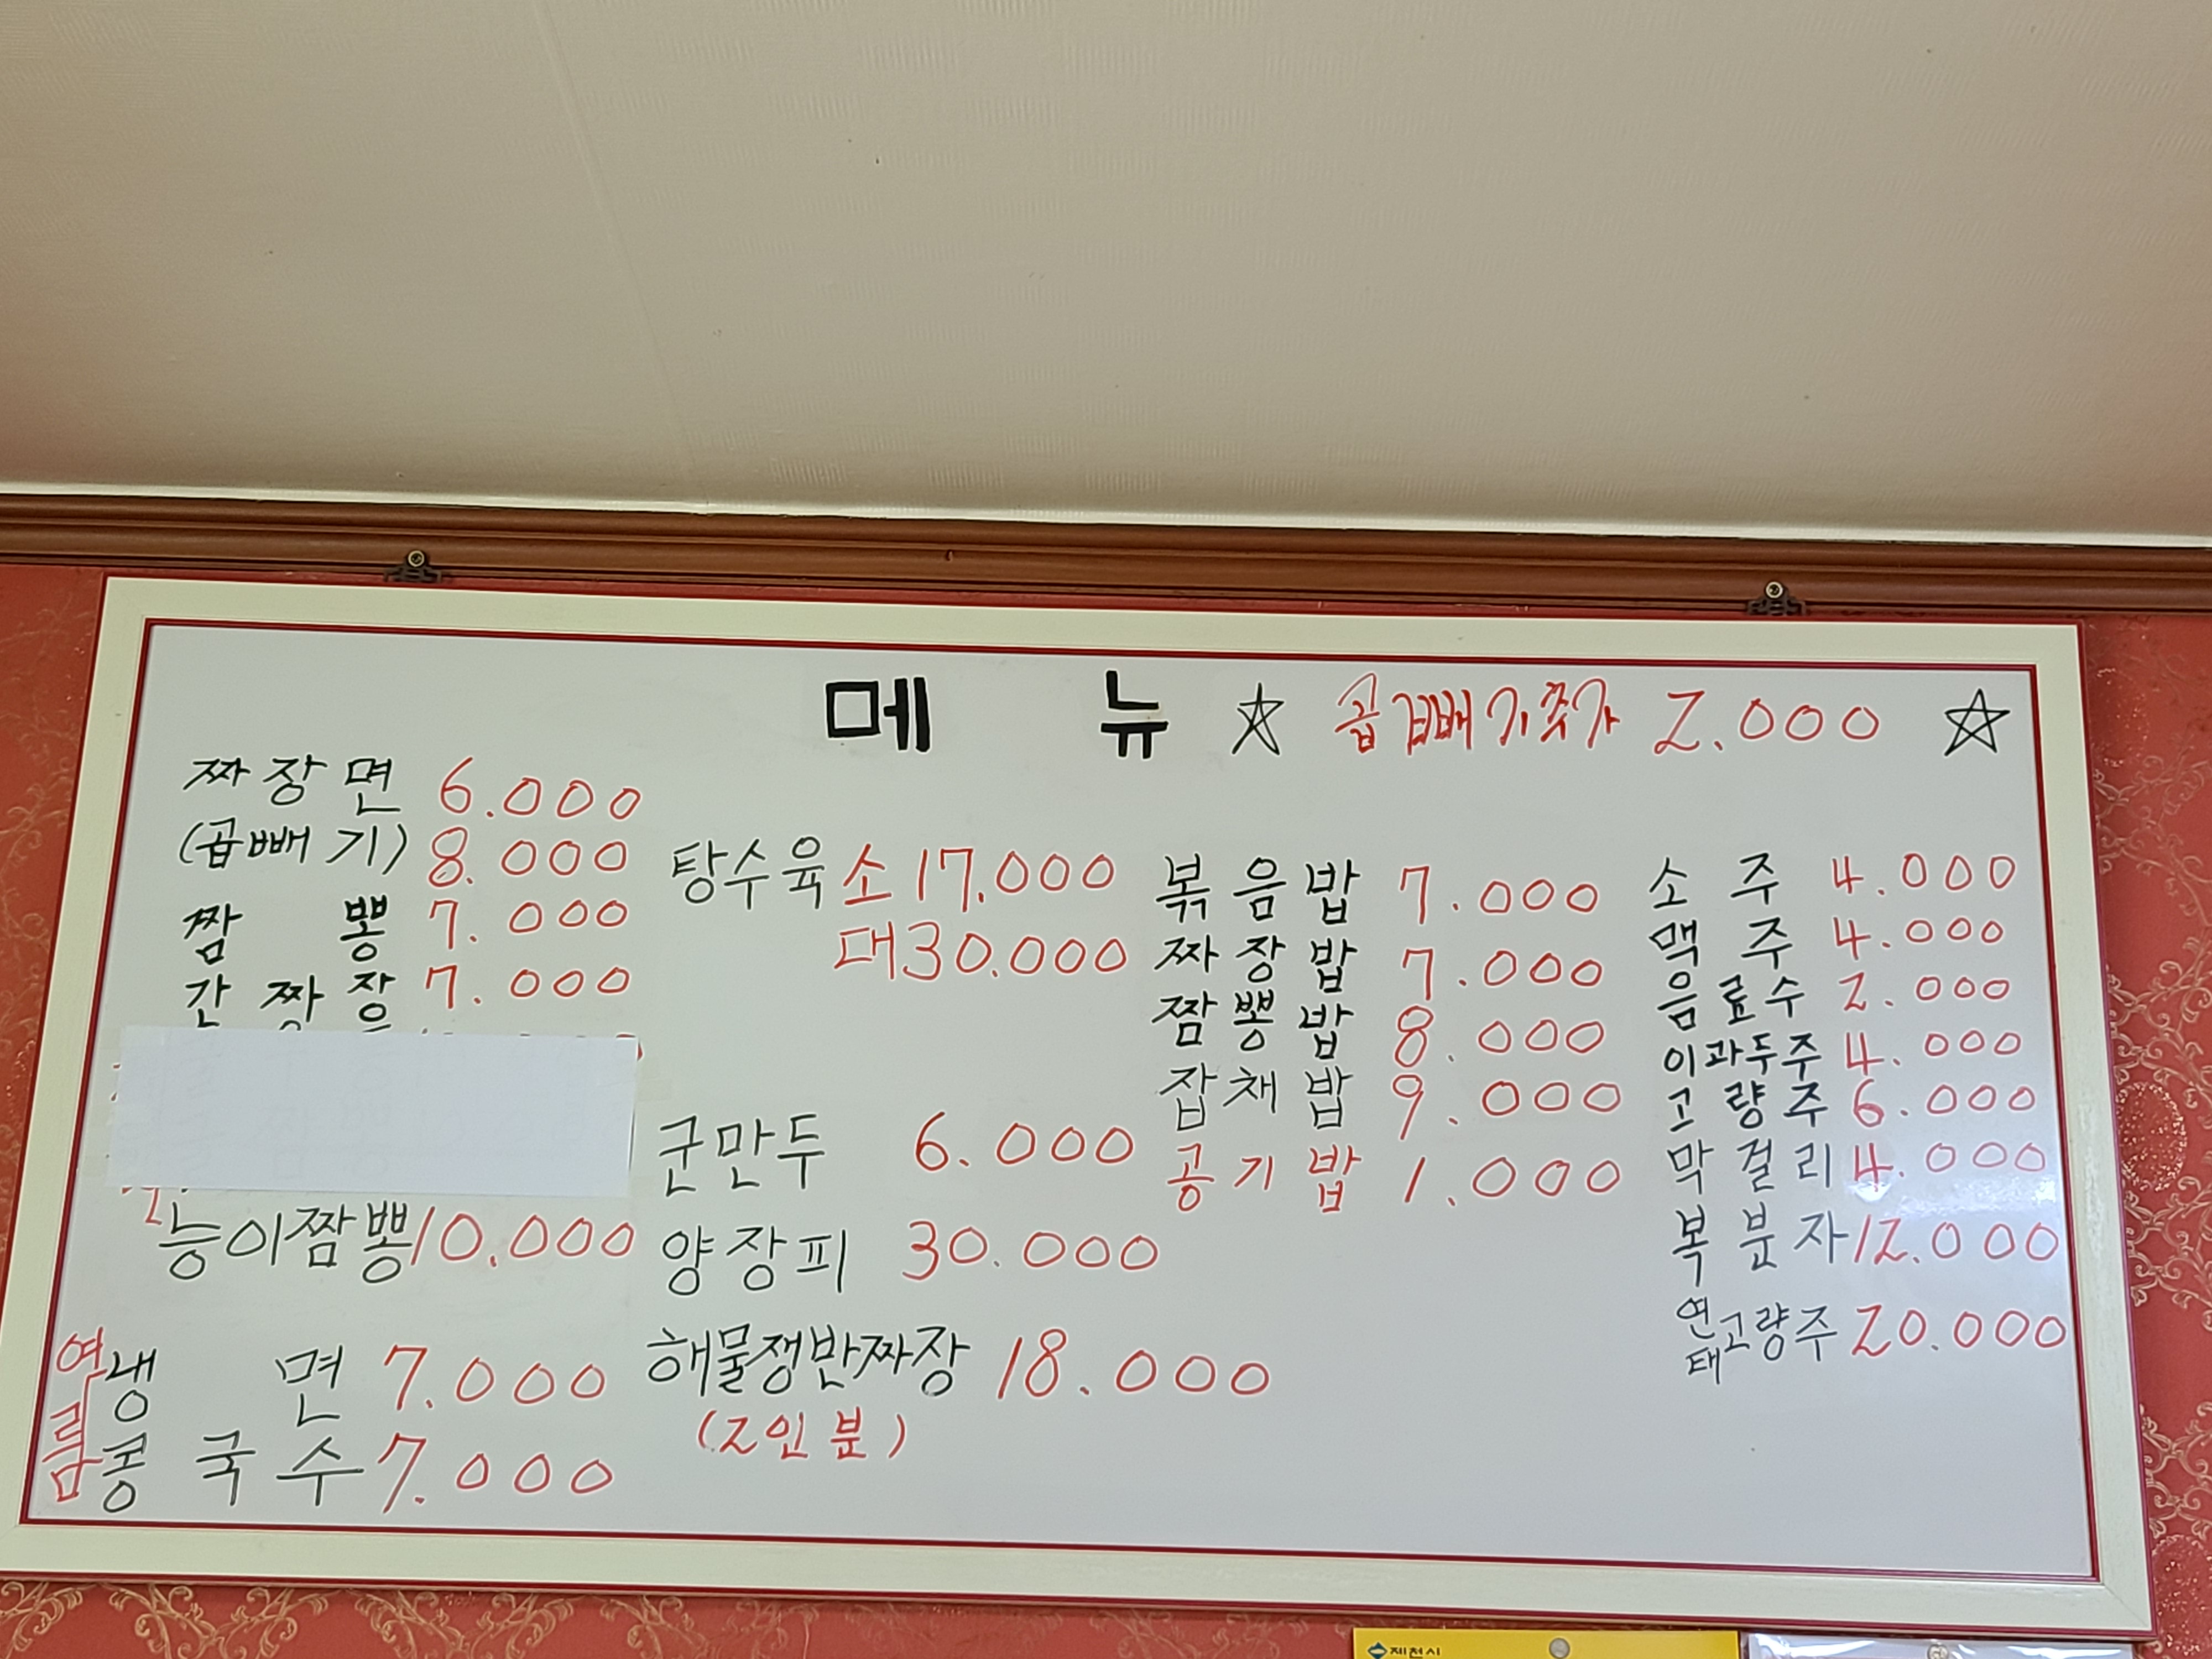 메뉴 ☆ 곱빼기추가 2.000 ☆
짜장면 6.000
(곱빼기) 8.000
짬뽕 7.000
간짜장 7.000
능이짬뽕 10.000
여름
냉면 7.000
콩국수 7.000
탕수육 소 17.000
대 30.000
군만두 6.000
양장피 30.000
해물쟁반짜장 18.000
(2인분)
볶음밥 7.000
짜장밥 7.000
짬뽕밥 8.000
잡채밥 9.000
공기밥 1.000
소주 4.000
맥주 4.000
음료수 2.000
이과두주 4.000
고량주 6.000
막걸리 4.000
복분자 12.000
연태고량주 20.000
제천시